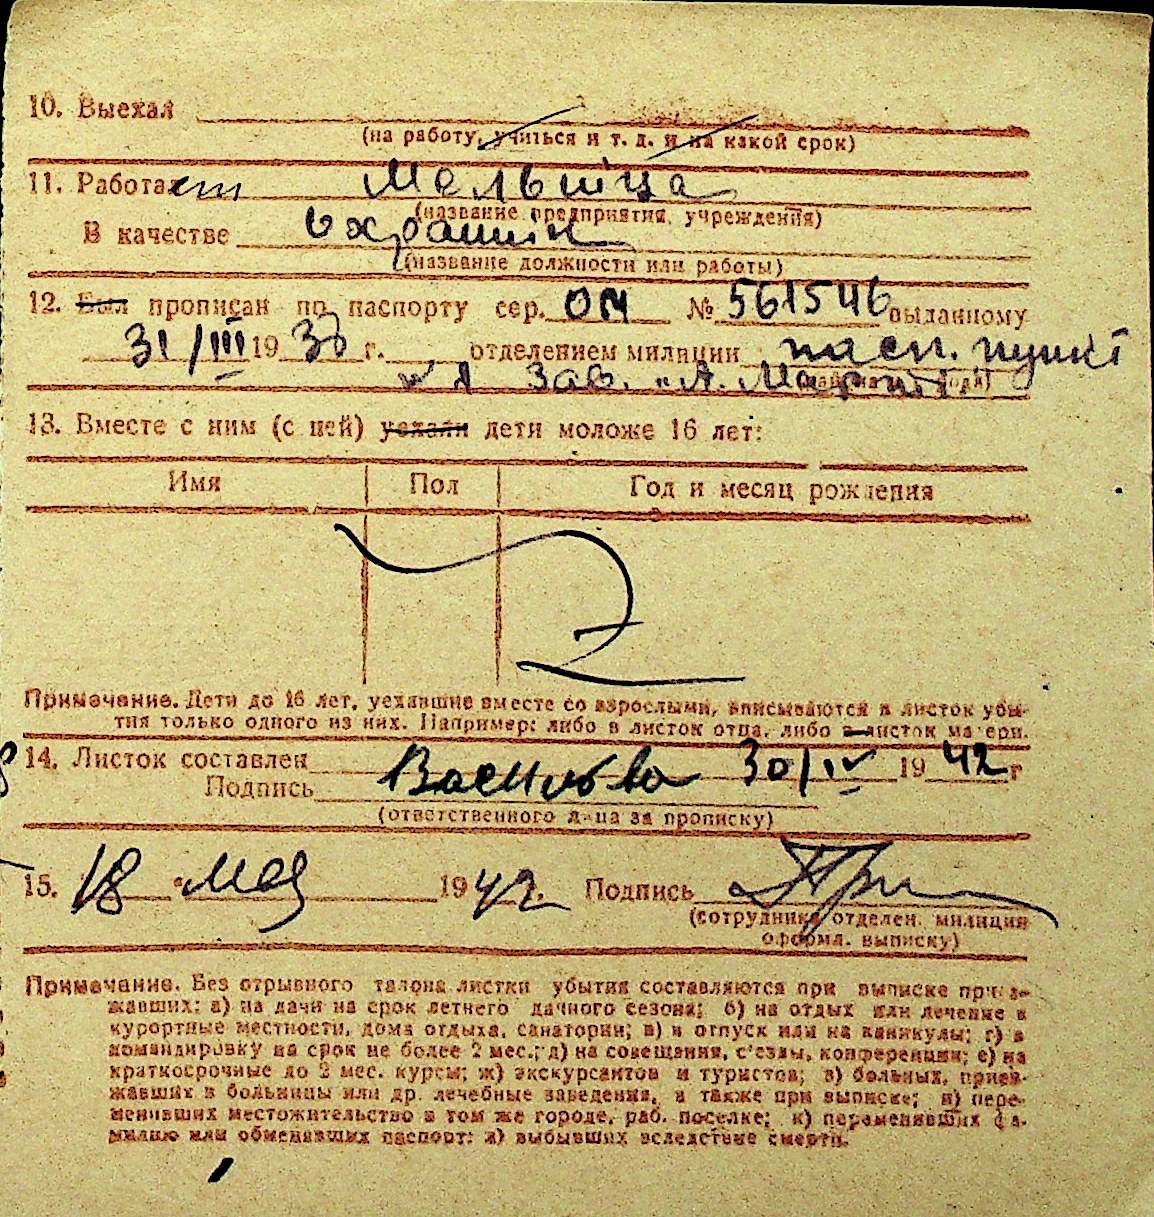 10. Выехал
(на работу, учиться и т. д. и на какой срок)
11. Работает Мельница
(название предприятия, учреждения)
В качестве охранник
(название должности или работы)
12. Был прописан по паспорту сер. ОМ № 561546 выданному
31/III 19 г. отделением милиции пасп. пункт
зав. "А. Марти"
13. Вместе с ним (с ней) уехали дети моложе 16 лет:
Имя Пол Год и месяц рождения
Примечание. Дети до 16 лет, уехавшие вместе со взрослыми, вписываются в листок убы-
тия только одного из них. Например: либо в листок отца, либо в листок матери.
14. Листок составлен 30/IV 19 42 г
Подпись Васильева
(ответственного лица за прописку)
15. 18 " мая 19 42. Подпись
(сотрудника отделен. милиции
оформл. выписку)
Примечание. Без отрывного талона листки убытия составляются при выписке приез-
жавших: а) на дачи на срок летнего дачного сезона; б) на отдых или лечение в
курортные местности, дома отдыха, санатории; в) в отпуск или на каникулы; г) в
командировку на срок не более 2 мес.; д) на совещания, с'езды, конференции; е) на
краткосрочные до 2 мес. курсы; ж) экскурсантов и туристов; з) больных, приез-
жавших в больницы или др. лечебные заведения, а также при выписке; и) пере-
менивших местожительство в том же городе, раб. поселке; к) переменивших фа-
милию или обменявших паспорт; л) выбывших вследствие смерти.